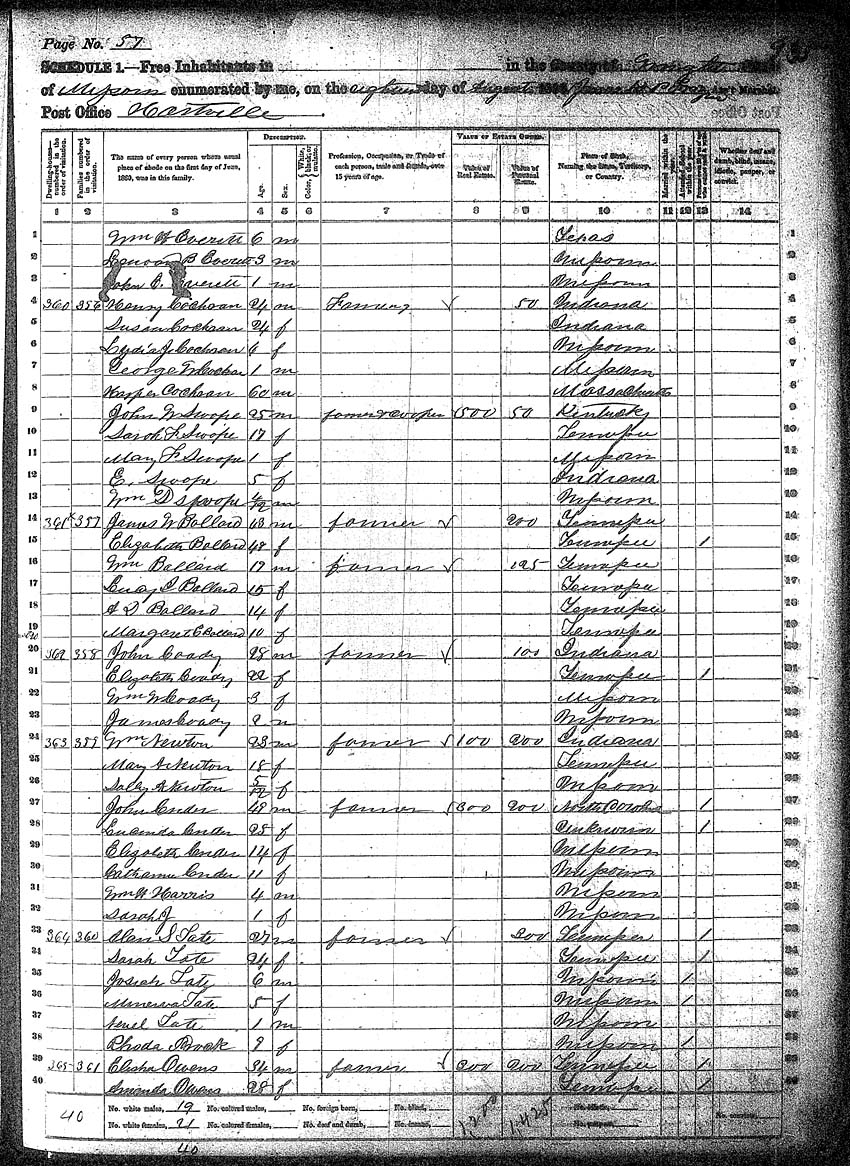 Page No. 57
SCHEDULE 1.—Free Inhabitants in in the County of State
of Missouri enumerated by me, on the day of August 1860. Ass't Marshal.
Post Office Hartville
DESCRIPTION. VALUE OF ESTATE OWNED.
Dwelling-houses numbered in the order of visitation. Families numbered in the order of visitation. The name of every person whose usual place of abode on the first day of June, 1860, was in this family. Age. Sex. Color, White, black, or mulatto. Profession, Occupation, or Trade of each person, male and female, over 15 years of age. Value of Real Estate. Value of Personal Estate. Place of Birth, Naming the State, Territory, or Country. Married within the year. Attended School within the year. Whether deaf and dumb, blind, insane, idiotic, pauper, or convict.
1 2 3 4 5 6 7 8 9 10 11 12 13 14
1 Wm Everett 6 m Texas 1
2 B Everett 3 m Missouri 2
3 John Everett 1 m Missouri 3
4 360 356 Henry Cochran 24 m Farming 50 Indiana 4
5 Susan Cochran 24 f Indiana 5
6 Lydia J Cochran f Missouri 6
7 George W Cochran 1 m Missouri 7
8 Kasper Cochran 60 m Massachusetts 8
9 John W Swope 25 m farmer & Cooper 500 50 Kentucky 9
10 Sarah F Swope 17 f Tennessee 10
11 Mary F Swope 1 f Missouri 11
12 E. Swope 5 f Indiana 12
13 Wm D Swope 4/12 m Missouri 13
14 361 357 James W Ballard 43 m farmer 200 Tennessee 14
15 Elizabeth Ballard 48 f Tennessee 1 15
16 Wm Ballard 17 m farmer 125 Tennessee 16
17 Ballard 15 f Tennessee 17
18 A D Ballard 14 f Tennessee 18
19 Margaret E Ballard 10 f Tennessee 19
20 362 358 John Coady 28 m farmer 100 Indiana 20
21 Elizabeth Coady 22 f Tennessee 1 21
22 Wm W Coady 3 f Missouri 22
23 James Coady 2 m Missouri 23
24 363 359 Wm Newton 23 m farmer 100 200 Indiana 24
25 Mary A Newton 18 f Tennessee 25
26 Sally A Newton 5/12 f Missouri 26
27 John 49 m farmer 300 200 North Carolina 1 27
28 Lucinda 25 f Unknown 1 28
29 Elizabeth 14 f Missouri 29
30 Catharine 11 f Missouri 30
31 Wm H Harris 4 m Missouri 31
32 Sarah J 1 f Missouri 32
33 364 360 Alan S Tate 27 m farmer 300 Tennessee 1 33
34 Sarah Tate 24 f Tennessee 1 34
35 Josiah Tate 6 m Missouri 1 35
36 Minerva Tate 5 f Missouri 1 36
37 Tate 1 m Missouri 37
38 Rhoda Brock 9 f Missouri 1 38
39 365 361 Elisha Owens 34 m farmer 200 200 Tennessee 1 39
40 Amanda Owens 28 f Tennessee 1 40
40 No. white males, 19 No. colored males, No. foreign born, No. blind, 1,200 1,425 No. idiotic, No. convicts,
No. white females, 21 No. colored females, No. deaf and dumb, No. insane, No. paupers,
40